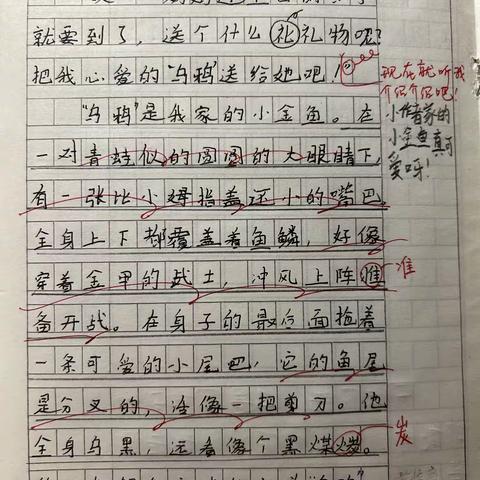 就要到了，送个什么礼礼物呢？
把我心爱的“乌鸦”送给她吧！
现在就听我
介绍介绍吧！
“乌鸦”是我家的小金鱼。在
小作者家的
小金鱼真可
爱呀！
一对青蛙似的圆圆的大眼睛下，
有一张比小姆指盖还小的嘴巴。
全身上下都覆盖着鱼鳞，好像
穿着金甲的战士，冲风上阵准
准
备开战。在身子的最后面拖着
一条可爱的小尾巴，它的鱼尾
是分叉的，活像一把剪刀。他
全身乌黑，远看像个黑煤炭。
炭